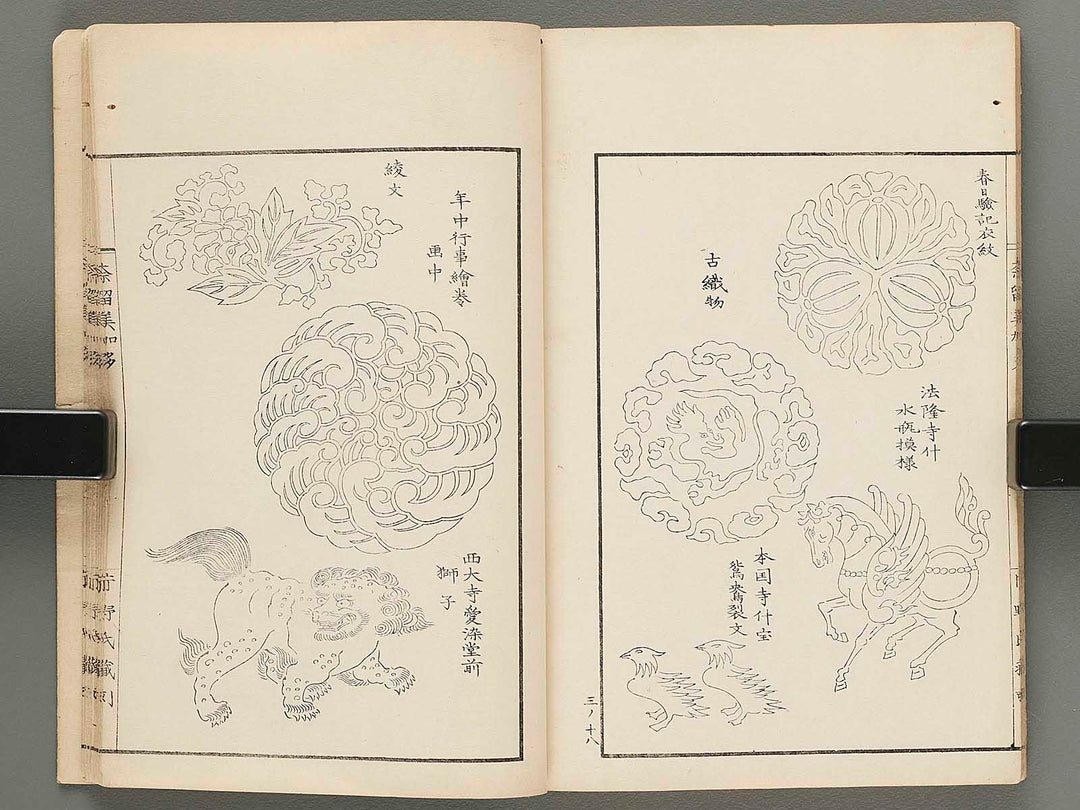 春日驗記衣紋
古織物
法隆寺什
水瓶摸樣
本国寺什宝
鴛鴦裂文
三ノ十八
綾文
年中行事繪巻
画中
西大寺愛染堂前
獅子